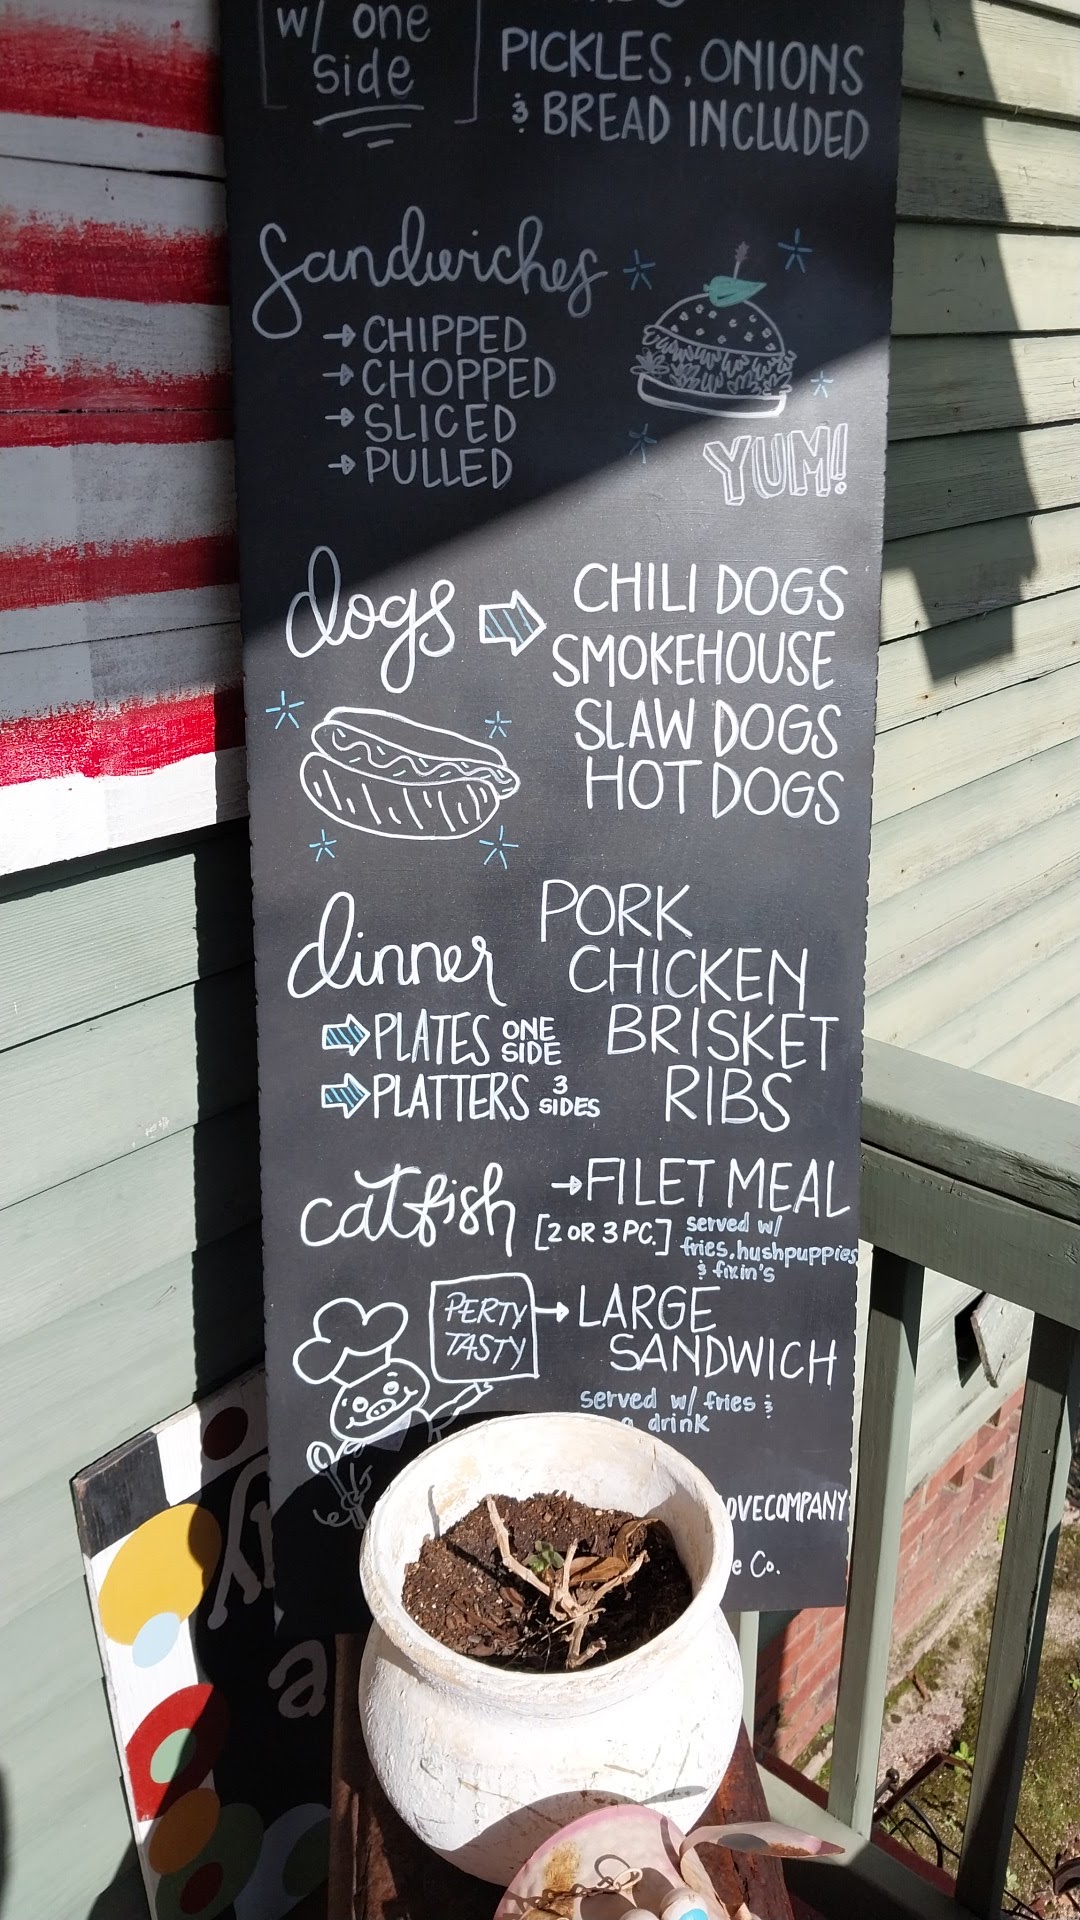 w/ one
side
PICKLES, ONIONS
& BREAD INCLUDED
Sandwiches
→ CHIPPED
→ CHOPPED
→ SLICED
→ PULLED
YUM!
dogs
CHILI DOGS
SMOKEHOUSE
SLAW DOGS
HOT DOGS
dinner
PLATES ONE SIDE
PLATTERS 3 SIDES
PORK
CHICKEN
BRISKET
RIBS
catfish
→ FILET MEAL
[2 OR 3 PC.]
served w/
fries, hushpuppies
& fixin's
PERTY
TASTY
→ LARGE
SANDWICH
served w/ fries &
a drink
OVECOMPANY
e Co.